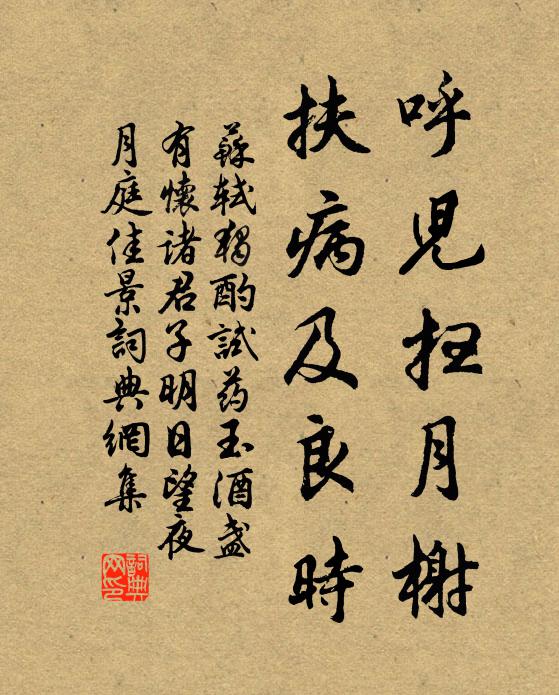 呼児扫月榭
扶病及良時
蘇軾獨酌試药玉酒盞
有懷诸君子明日望夜
月庭佳景詞典網集
詞典网印